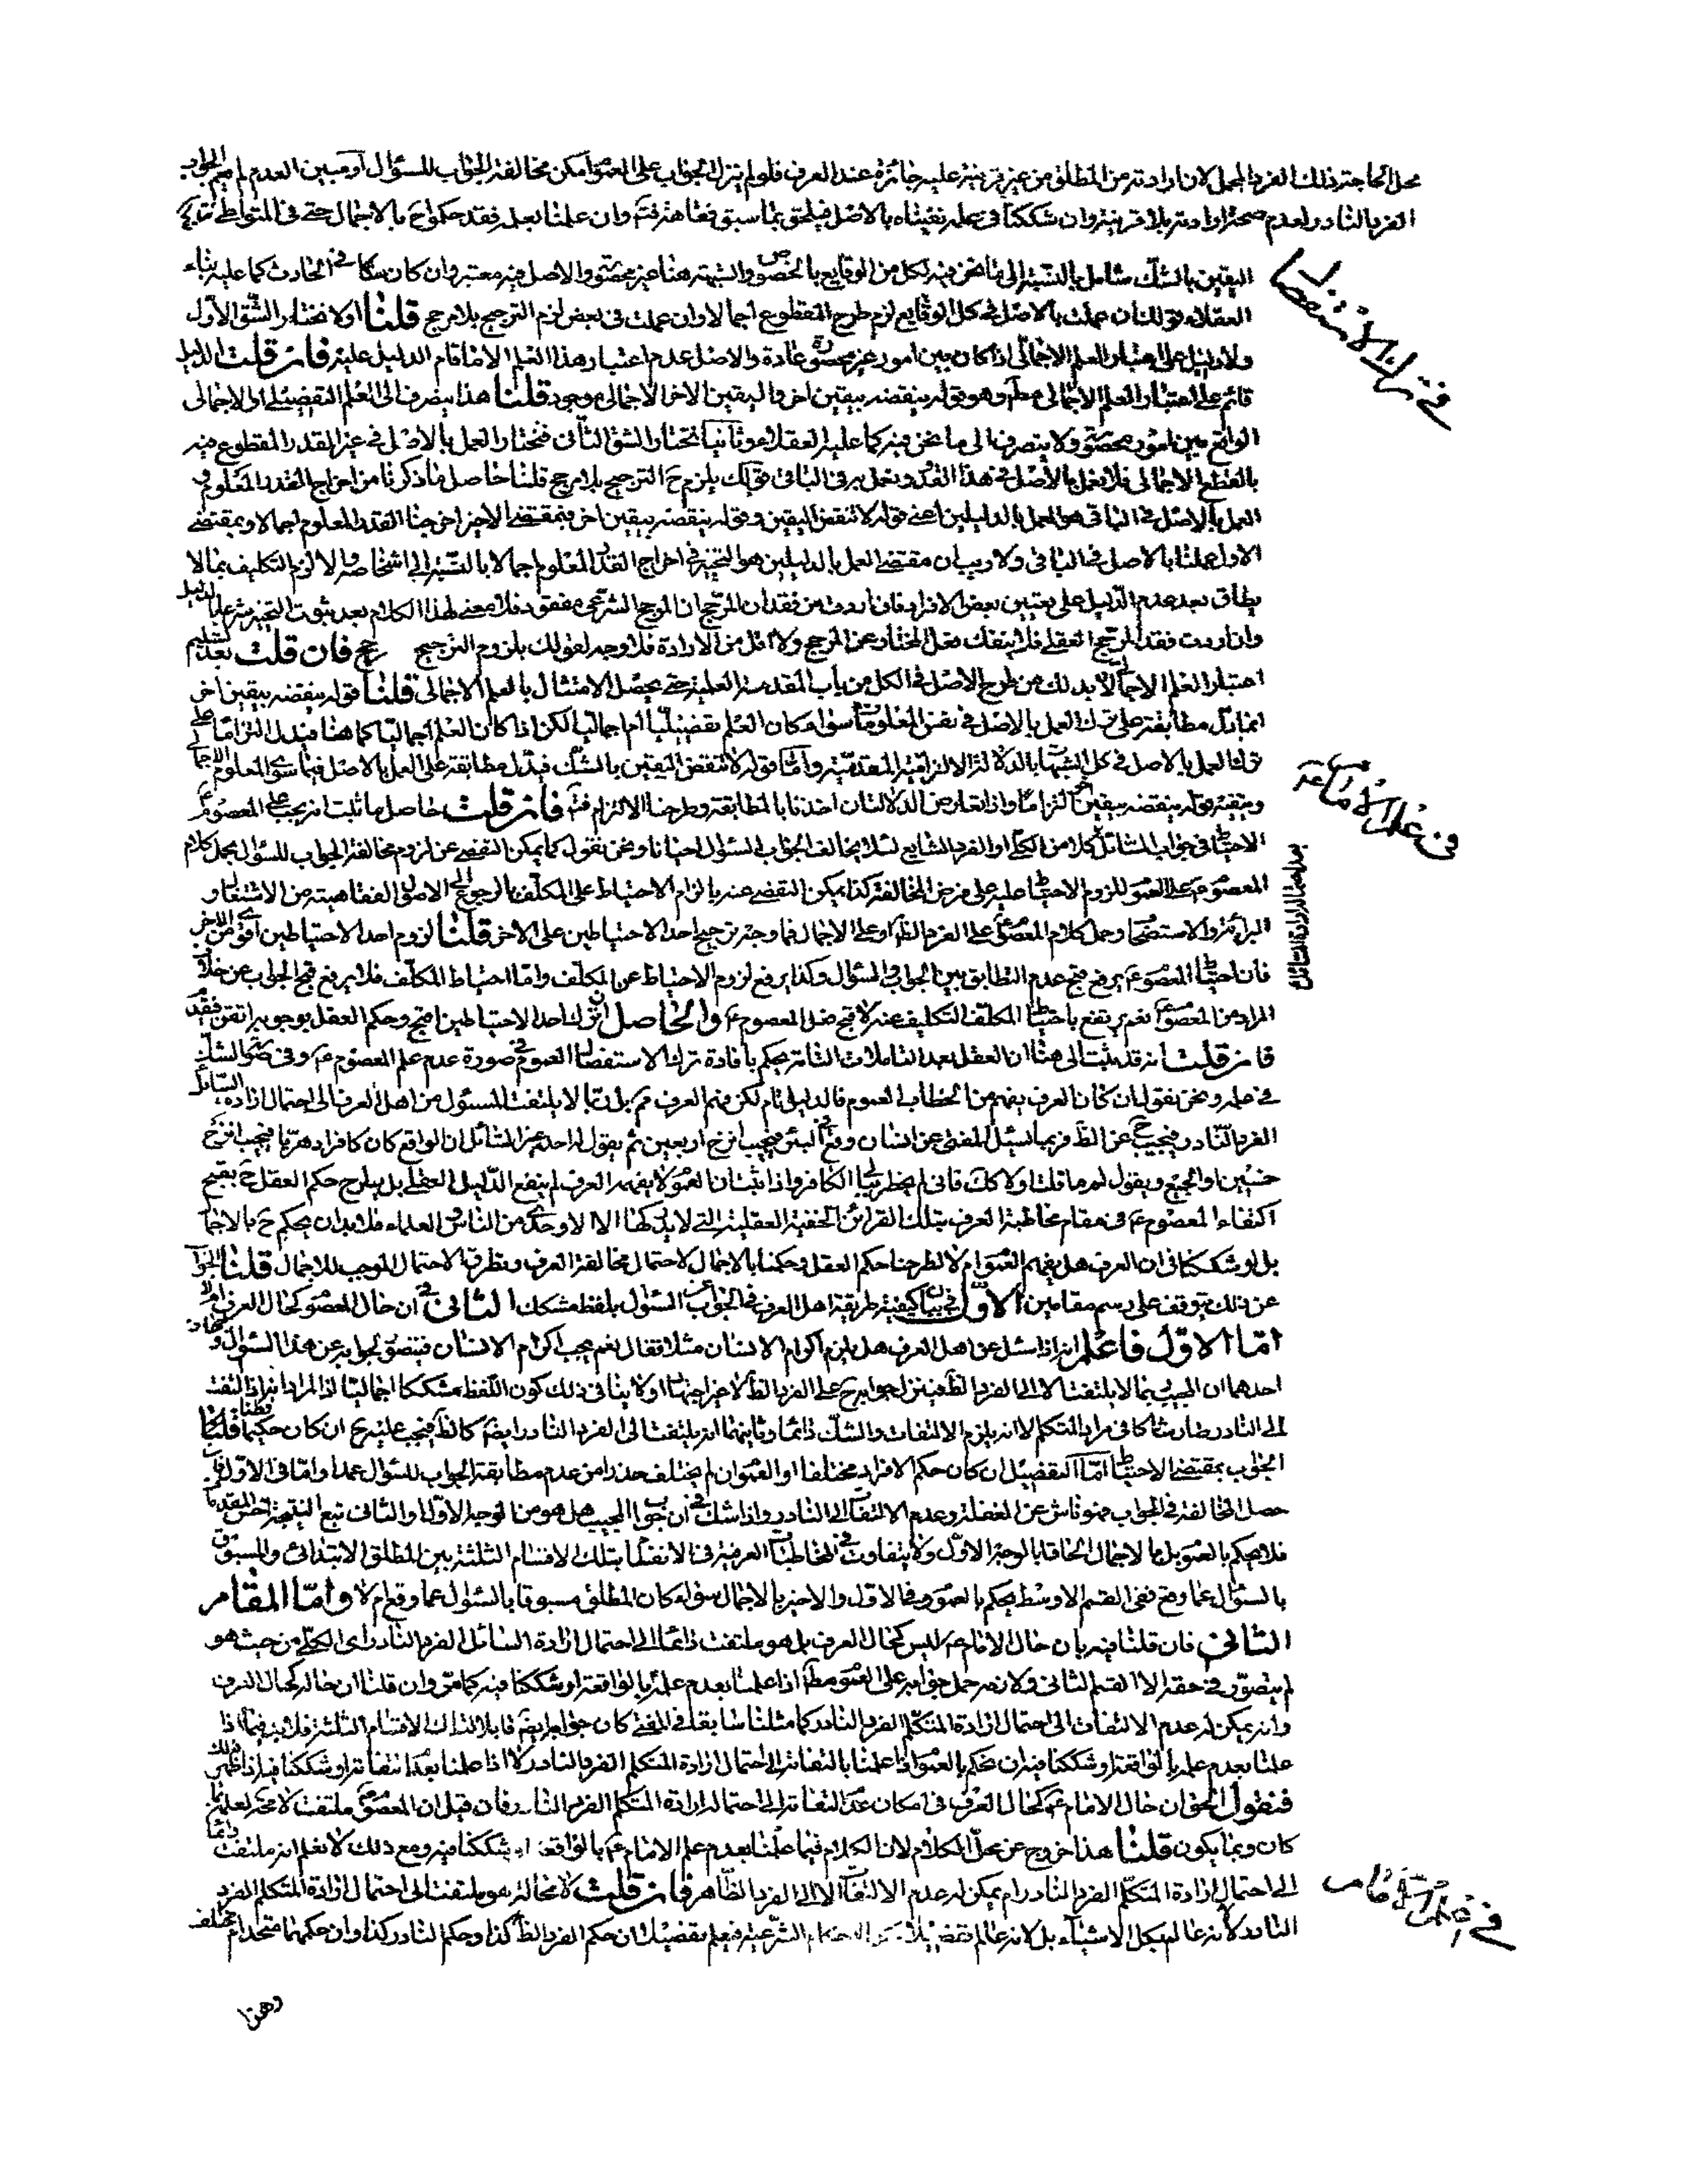 محل الحاجة ذلك الفرد المجمل لان ارادته من المطلق من غير قرينة عليه جائزة عند العرف فلو لم ينزل الجواب على العموم امكن مخالفة الجواب للسؤال او مبين العدم لم يعم الجواب
الفرد النادر لعدم صحة ارادته بلا قرينة وان شككنا في عمله نفيناه بالاصل فيلحق بما سبق وان علمنا بعمله فقد حكموا ح بالاجمال حتى في المتواطي
في ترك الاستفصال
اليقين بالشك شامل بالنسبة الى ما نحن فيه لكل من الوقايع بالخصوص والشبهة هنا غير محصورة والاصل فيه معتبر وان كان شكا في الحادث كما عليه بناء
العقلاء قولك ان عملت بالاصل في كل الوقايع لزم طرح المقطوع اجمالا وان عملت في بعض لزم الترجيح بلا مرجح قلنا اولا نختار الشق الاول
ولا دليل على اعتبار العلم الاجمالي اذا كان بين امور غير محصورة عادة والاصل عدم اعتبار هذا العلم الا ما قام الدليل عليه فان قلت الدليل
قائم على اعتبار العلم الاجمالي مطلقا وهو قوله ينقضه بيقين اخر واليقين الاخر الاجمالي موجود قلنا هذا ينصرف الى العلم التفصيلي او الاجمالي
الواقع بين امور محصورة ولا ينصرف الى ما نحن فيه كما عليه العقلاء وثانيا نختار الشق الثاني فنختار العمل بالاصل في غير المقدر المقطوع فيه
بالقطع الاجمالي فلا نعمل بالاصل في هذا القدر ونعمل به في الباقي قولك يلزم ح الترجيح بلا مرجح قلنا حاصل ما ذكرنا من اخراج القدر المعلوم و
العمل بالاصل في الباقي هو العمل بالدليلين اعني قوله لا تنقض اليقين وقوله ينقضه بيقين اخر فبمقتضى الاخير اخرجنا القدر المعلوم اجمالا وبمقتضى
الاول عملنا بالاصل في الباقي ولا ريب ان مقتضى العمل بالدليلين هو التخيير في اخراج القدر المعلوم اجمالا بالنسبة الى اشخاصه والا لزم التكليف بما لا
يطاق بعد عدم الدليل على تعيين بعض الافراد فان اردت من فقدان المرجح ان المرجح الشرعي مفقود فلا معنى لهذا الكلام بعد ثبوت التخيير شرعا بالدليل
وان اردت فقد المرجح العقلي فلا ينفك فعل المختار عن المرجح ولا اقل من الارادة فلا وجه لقولك بلزوم الترجيح فان قلت بعد تسليم
اعتبار العلم الاجمالي لا بد لك من طرح الاصل في الكل من باب المقدمة العلمية حتى يحصل الامتثال بالعلم الاجمالي قلنا قوله ينقضه بيقين اخر
انما يدل مطابقة على ترك العمل بالاصل في نفس المعلومات سواء كان العلم تفصيليا ام اجماليا لكن اذا كان العلم اجماليا كما هنا فيدل التزاما على
ترك العمل بالاصل في كل الشبهات بالدلالة الالتزامية المقدمية واما قوله لا تنقض اليقين بالشك فيدل مطابقة على العمل بالاصل فيما سوى المعلوم الاجمالي
في علم الامام عليه
وبنفيه قوله ينقضه بيقين التزاما واذا تعارض الدلالتان اخذنا بالمطابقة وطرحنا الالتزام فان قلت حاصل ما ثبت انه يجب على المعصوم
الاحتياط في جواب السائل كلا من الكلي او الفرد الشايع لئلا يخالف الجواب السؤال احيانا ونحن نقول كما يمكن التفصي عن لزوم مخالفة الجواب للسؤال بحمل كلام
المعصوم على العموم للزوم الاحتياط عليه على فرض المخالفة كذا يمكن التفصي عنه بالزام الاحتياط على المكلف بالرجوع الى الاصول الفقاهية من الاشتغال و
البرائة والاستصحاب وحمل كلام المعصوم على الفرد الظاهر او على الاجمال فما وجه ترجيح احد الاحتياطين على الاخر قلنا لزوم احد الاحتياطين اقوى من الاخر
فان احتياط المعصوم يرفع قبح عدم التطابق بين الجواب والسؤال وكذا يرفع لزوم الاحتياط عن المكلف واما احتياط المكلف فلا يرفع قبح الجواب عن خلاف
المراد من المعصوم نعم يرتفع باحتياط المكلف التكليف عنه لا قبح فعل المعصوم والحاصل ان ترك احد الاحتياطين اقبح وحكم العقل بوجوبه اتقن
فان قلت انه قد ثبت الى هنا ان العقل بعد التاملات التامة يحكم بافادة ترك الاستفصال العموم في صورة عدم علم المعصوم وفي صورة الشك
في علمه ونحن نقول ان كان العرف يفهم من الخطاب العموم فالدليل تام لكن فهم العرف مم بل ربما لا يلتفت المسئول من اهل العرف الى احتمال ارادة السائل
الفرد النادر فيجيب ح عن الظاهر فربما يسئل المفتي عن انسان وقع في البئر فيجيب انزح اربعين ثم يقول له احد غير السائل ان الواقع كان كافرا فيجيب انزح
خمسين او الجميع ويقول لم ما قلت اولا كك فاني لم يخطر ببالي الكافر واذا ثبت ان العموم لا يفهمه العرف لم ينفع الدليل العقلي بل يطرح حكم العقل ح بقبح
اكتفاء المعصوم في مقام مخاطبة العرف بتلك القرائن الخفية العقلية التي لا يدركها الا الاوحدي من الناس والعلماء فلا بد ان يحكم ح بالاجمال
بل لو شككنا في ان العرف هل يفهم العموم ام لا لطرحنا حكم العقل وحكمنا بالاجمال لاحتمال مخالفة العرف وتطرق الاحتمال الموجب للاجمال قلنا الجواب
عن ذلك يتوقف على رسم مقامين الاول في بيان كيفية طريقة اهل العرف في الجواب عن السؤال بلفظ مشكك الثاني في ان حال المعصوم كحال العرف ام لا
اما الاول فاعلم انه اذا سئل عن اهل العرف هل يلزم اكرام الانسان مثلا فقال نعم يجب اكرام الانسان فيتصور لجوابه عن هذا السؤال وجهان
احدهما ان المجيب ربما لا يلتفت الا الى الفرد الظاهر فينزل جوابه ح على الفرد الظاهر لا غير ولا ينافي ذلك كون اللفظ مشككا اجماليا اذ المراد انه اذا التفت
الى النادر صار شاكا في مراد المتكلم لا انه يلزم الالتفات والشك دائما وثانيهما انه يلتفت الى الفرد النادر ايضا كالظاهر فيجب عليه ح ان كان حكيما فطنا
الجواب بمقتضى الاحتياط اما التفصيل ان كان حكم الافراد مختلفا او العموم ان لم يختلف حذرا من عدم مطابقة الجواب للسؤال عمدا واما في الاول فان
حصل المخالفة في الجواب فهو ناش عن الغفلة وعدم الالتفات الى النادر واذا شك في ان جواب المجيب هل هو من الوجه الاول او الثاني تبع النتيجة اخس المقدمات
فلا يحكم بالعموم بل بالاجمال الحاقا بالوجه الاول ولا يتفاوت في المخاطبات العرفية في الانقسام بتلك الاقسام الثلثة بين المطلق الابتدائي والمسبوق
بالسؤال عما وقع ففي القسم الاوسط يحكم بالعموم وفي الاول والاخير بالاجمال سواء كان المطلق مسبوقا بالسؤال عما وقع ام لا واما المقام
الثاني فان قلنا فيه بان حال الامام ليس كحال العرف بل هو ملتفت دائما الى احتمال ارادة السائل الفرد النادر اي الكلي من حيث هو
لم يتصور في حقه الا القسم الثاني ولازمه حمل جوابه على العموم مطلقا اذا علمنا بعدم علمه بالواقعة او شككنا فيه كما مر وان قلنا ان حاله كحال العرف
وانه يمكن له عدم الالتفات الى احتمال ارادة المتكلم الفرد النادر كما مثلنا سابقا في المفتي كان جوابه ايضا قابلا لتلك الاقسام الثلثة فلا بد فيما اذا
علمنا بعدم علمه بالواقعة او شككنا فيه ان نحكم بالعموم اذا علمنا بالتفاته الى احتمال ارادة المتكلم الفرد النادر لا اذا علمنا بعدم التفاته او شككنا فيه اذا ظهر ذلك
فنقول الحق ان حال الامام كحال العرف في امكان عدم التفاته الى احتمال ارادة المتكلم الفرد النادر فان قيل ان المعصوم ملتفت لا محالة لعلمه بما
كان وبما يكون قلنا هذا خروج عن محل الكلام لان الكلام فيما علمنا بعدم علم الامام بالواقعة او شككنا فيه ومع ذلك لا نعلم انه ملتفت دائما
في علم الامام
الى احتمال ارادة المتكلم الفرد النادر ام يمكن له عدم الالتفات الا الى الفرد الظاهر فان قلت لا محالة هو ملتفت الى احتمال ارادة المتكلم الفرد
النادر لانه عالم بكل الاشياء بل لانه عالم تفصيلا الاحكام الشرعية فيعلم تفصيلا ان حكم الفرد الظاهر كذا وحكم النادر كذا وان حكمهما متحد ام مختلف
وهذا